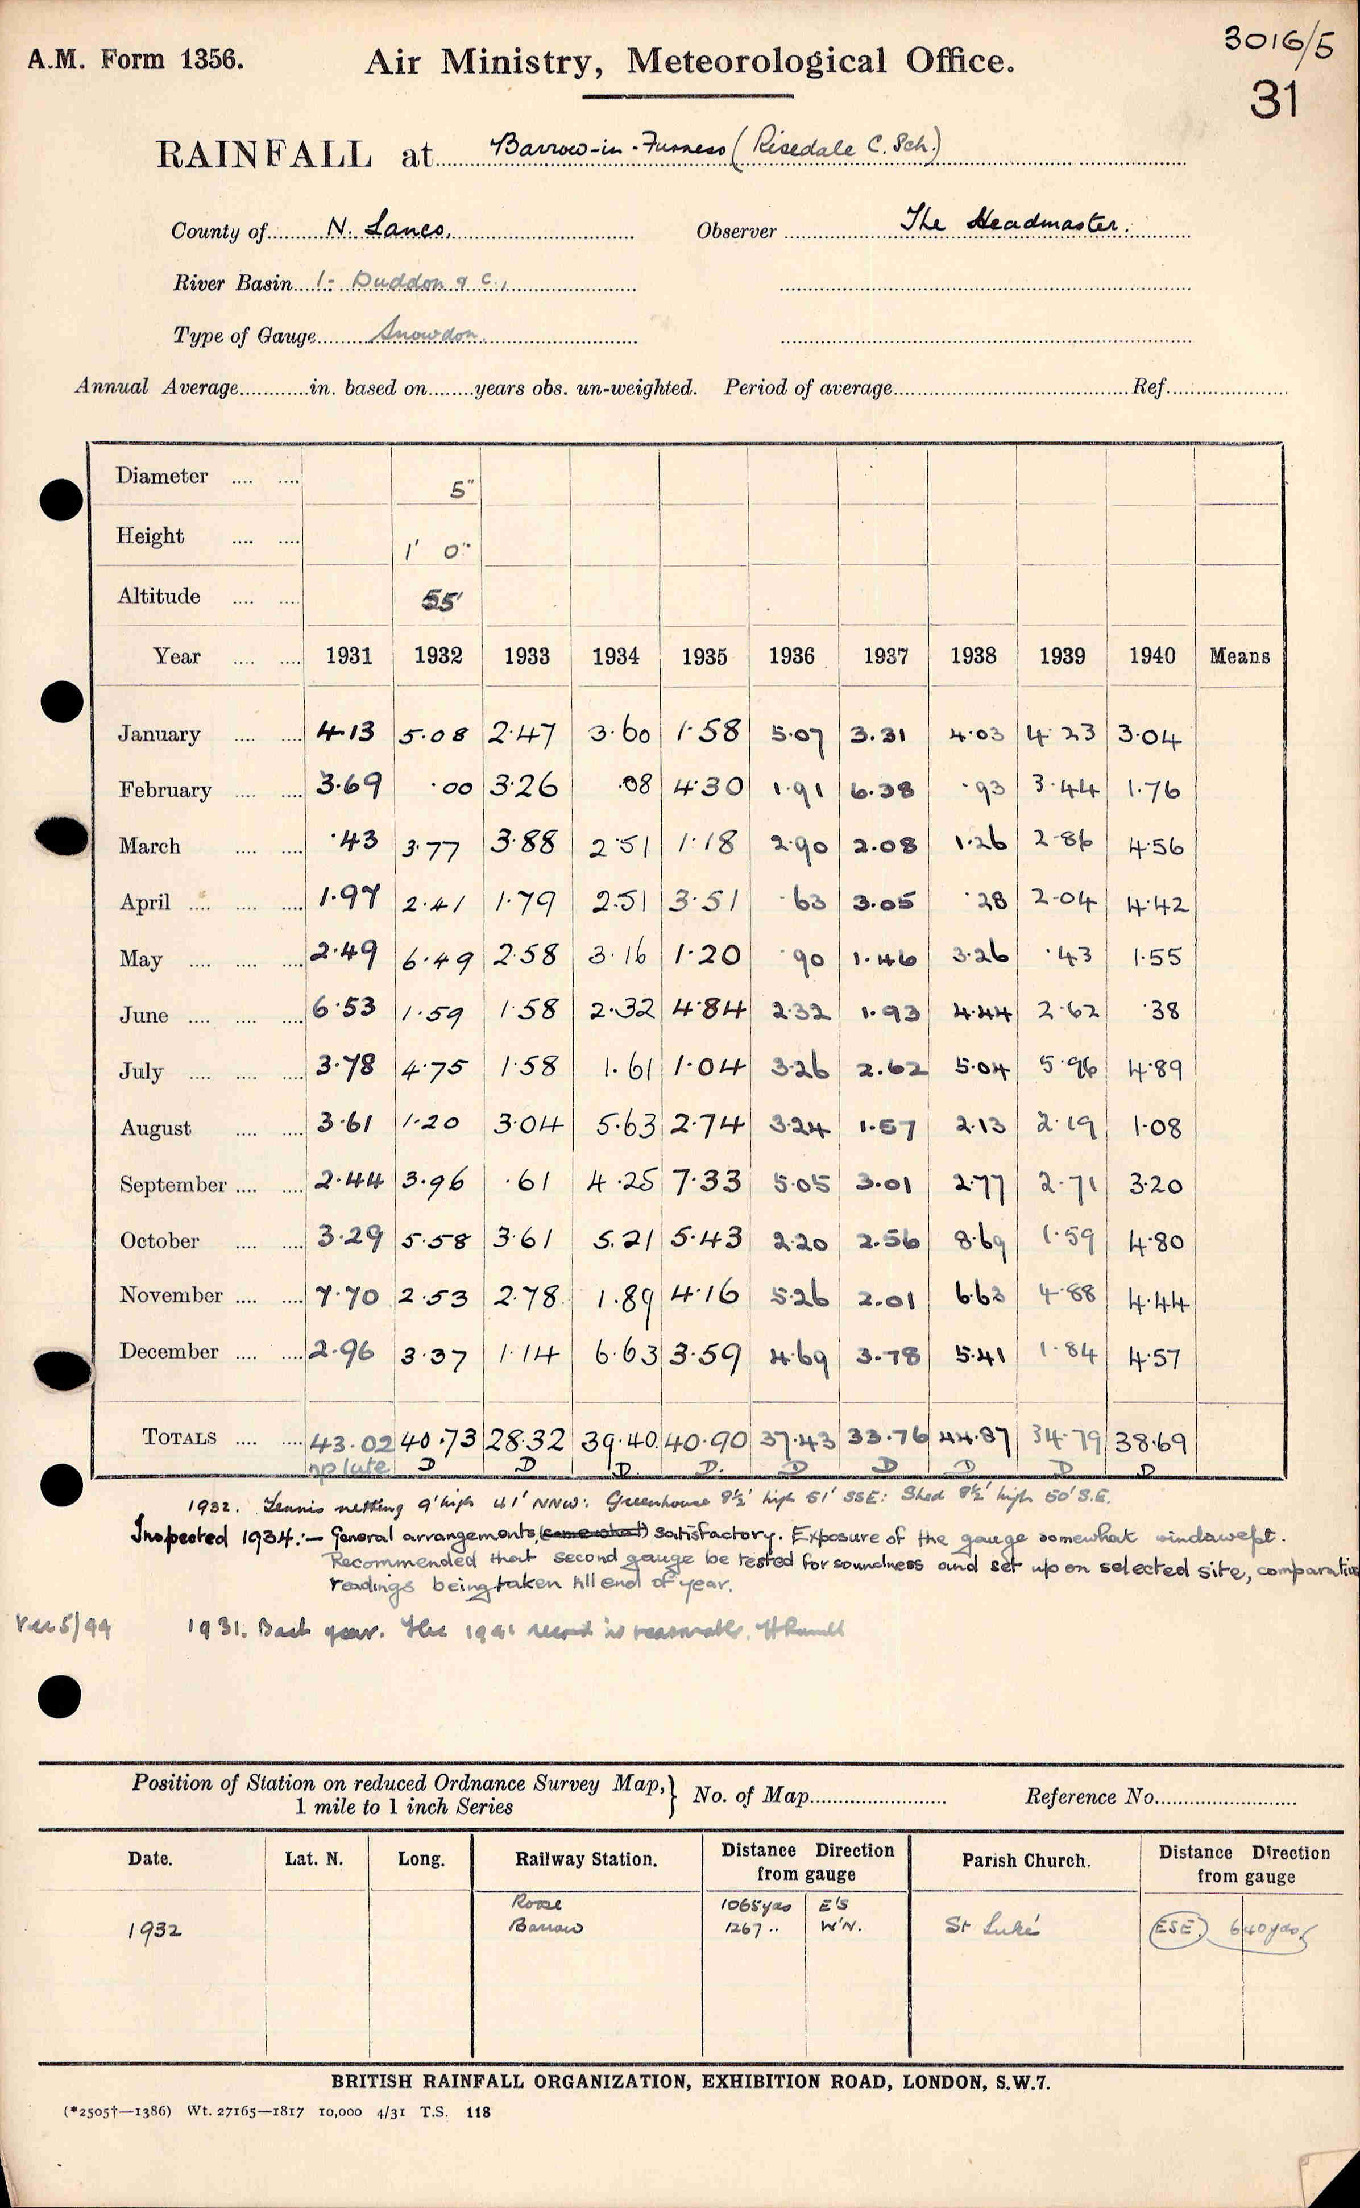 A.M. Form 1356.
Air Ministry, Meteorological Office.
3016/5
31
RAINFALL at Barrow-in-Furness (Risedale C. Sch.)
County of N. Lancs. Observer The Headmaster.
River Basin 1- Duddon & c.,
Type of Gauge Snowdon
Annual Average in. based on years obs. un-weighted. Period of average Ref.
Diameter 5"
Height 1' 0"
Altitude 55'
Year 1931 1932 1933 1934 1935 1936 1937 1938 1939 1940 Means
January 4.13 5.08 2.47 3.60 1.58 5.07 3.31 4.03 4.23 3.04
February 3.69 .00 3.26 .08 4.30 1.91 6.38 .93 3.44 1.76
March .43 3.77 3.88 2.51 1.18 2.90 2.08 1.26 2.86 4.56
April 1.97 2.41 1.79 2.51 3.51 .63 3.05 .28 2.04 4.42
May 2.49 6.49 2.58 3.16 1.20 .90 1.46 3.26 .43 1.55
June 6.53 1.59 1.58 2.32 4.84 2.32 1.93 4.44 2.62 .38
July 3.78 4.75 1.58 1.61 1.04 3.26 2.62 5.04 5.96 4.89
August 3.61 1.20 3.04 5.63 2.74 3.24 1.57 2.13 2.19 1.08
September 2.44 3.96 .61 4.25 7.33 5.05 3.01 2.77 2.71 3.20
October 3.29 5.58 3.61 5.21 5.43 2.20 2.56 8.69 1.59 4.80
November 7.70 2.53 2.78 1.89 4.16 5.26 2.01 6.63 4.88 4.44
December 2.96 3.37 1.14 6.63 3.59 4.69 3.78 5.41 1.84 4.57
TOTALS 43.02 40.73 28.32 39.40 40.90 37.43 33.76 44.87 34.79 38.69
D D D. D. D D D D D
1932. Tennis netting 9' high 41' NNW: Greenhouse 8½' high 51' SSE: Shed 8½' high 50' S.E.
Inspected 1934:— General arrangements (somewhat) satisfactory. Exposure of the gauge somewhat windswept.
Recommended that second gauge be tested for soundness and set up on selected site, comparative
readings being taken till end of year.
1931. Back year. The 1931 record is reasonable.
Position of Station on reduced Ordnance Survey Map, 1 mile to 1 inch Series } No. of Map Reference No.
Date. Lat. N. Long. Railway Station. Distance Direction from gauge Parish Church. Distance Direction from gauge
Roose 1065 yds E'S
1932 Barrow 1267 .. W'N. St Luke's ESE 640 yds
BRITISH RAINFALL ORGANIZATION, EXHIBITION ROAD, LONDON, S.W.7.
(*2505†—1386) Wt. 27165—1817 10,000 4/31 T.S. 118